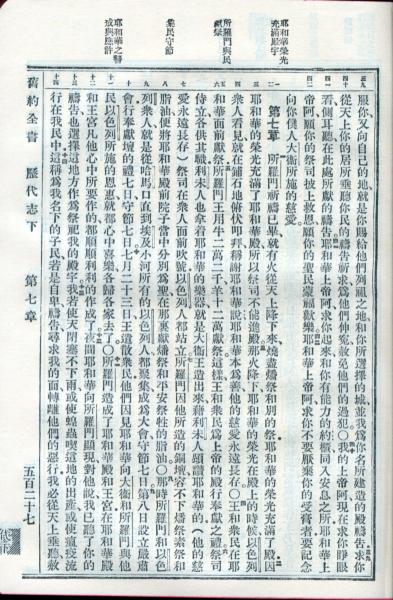 耶和華榮光
充滿殿宇
所羅門與民
獻祭
衆民守節
耶和華
三九
服你又向自己的地就是你賜給他們列祖之地和你所選擇的城並我爲你名所建造的殿禱告求你
四十
從天上你的居所垂聽你民的禱告祈求爲他們伸冤赦免他們的過犯〇我的上帝阿現在求你睜眼
四一
看側耳聽在此處所獻的禱告耶和華上帝阿求你起來和你有能力的約櫃同入安息之所耶和華上
四二
帝阿願你的祭司披上救恩願你的聖民蒙福歡樂耶和華上帝阿求你不要厭棄你的受膏者要記念
向你僕人大衛所施的慈愛
第七章
所羅門祈禱已畢就有火從天上降下來燒盡燔祭和別的祭耶和華的榮光充滿了殿因
耶和華的榮光充滿了耶和華殿所以祭司不能進殿那火降下耶和華的榮光在殿上的時候以色列
衆人看見就在鋪石地俯伏叩拜稱謝耶和華說耶和華本爲善他的慈愛永遠長存〇王和衆民在耶
和華面前獻祭所羅門王用牛二萬二千羊十二萬獻祭這樣王和衆民爲上帝的殿行奉獻之禮祭司
侍立各供其職利未人也拿着耶和華的樂器就是大衛王造出來藉利未人頌讚耶和華的（他的慈
愛永遠長存）祭司在衆人面前吹號以色列人都站立所羅門因他所造的銅壇容不下燔祭素祭和
脂油便將耶和華殿前院子當中分別爲聖在那裏獻燔祭和平安祭牲的脂油〇那時所羅門和以色
列衆人就是從哈馬口直到埃及小河所有的以色列人都聚集成爲大會守節七日第八日設立嚴肅
會行奉獻壇的禮七日守節七日七月二十三日王遣散衆民他們因見耶和華向大衛和所羅門與他
民以色列所施的恩惠就都心中喜樂各歸各家去了〇所羅門造成了耶和華殿和王宮在耶和華殿
和王宮凡他心中所要作的都順順利利的作成了夜間耶和華向所羅門顯現對他說我已聽了你的
禱告也選擇這地方作爲祭祀我的殿宇我若使天閉塞不下雨或使蝗蟲喫這地的出產或使瘟疫流
行在我民中這稱爲我名下的子民若是自卑禱告尋求我的面轉離他們的惡行我必從天上垂聽赦
舊約全書　歷代志下　第七章　五百二十七